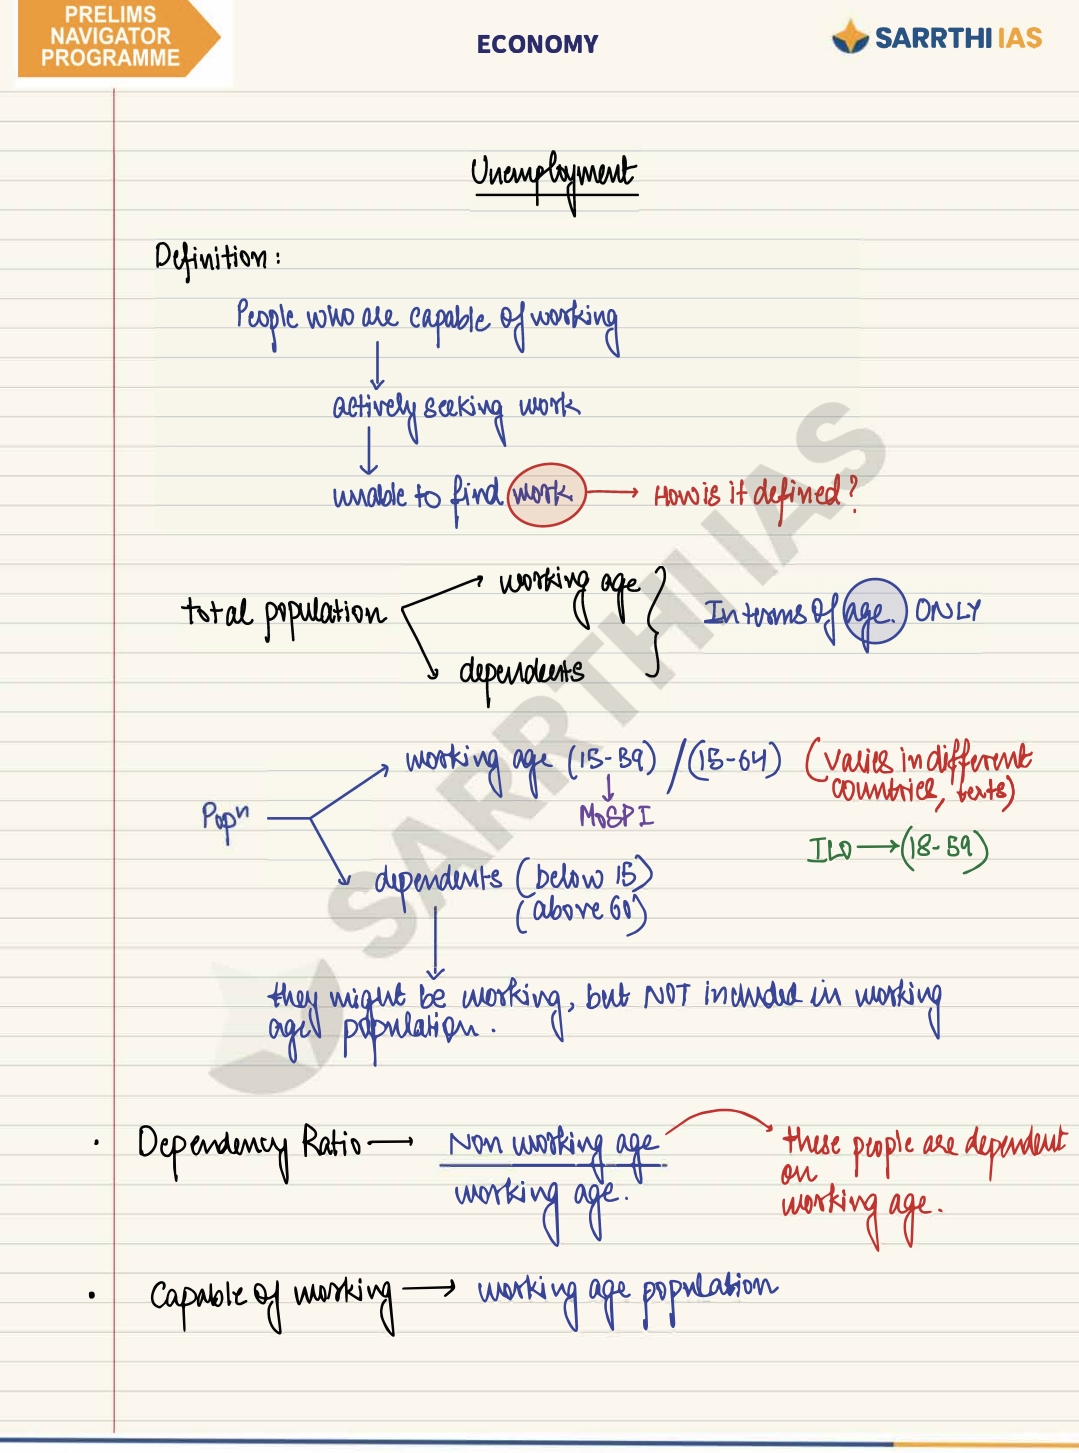 PRELIMS
NAVIGATOR
PROGRAMME
ECONOMY
SARRTHI IAS
Unemployment
Definition :
People who are capable of working
actively seeking work
unable to find work → How is it defined?
total population
working age
dependents
In terms of age. ONLY
Popn
working age (15-59) / (15-64) (varies in different
countries, texts)
MoSPI
ILO → (18-59)
dependents (below 15)
(above 60)
they might be working, but NOT included in working
age population.
· Dependency Ratio → Non working age
working age.
these people are dependent
on
working age.
· Capable of working → working age population
SARRTHI IAS